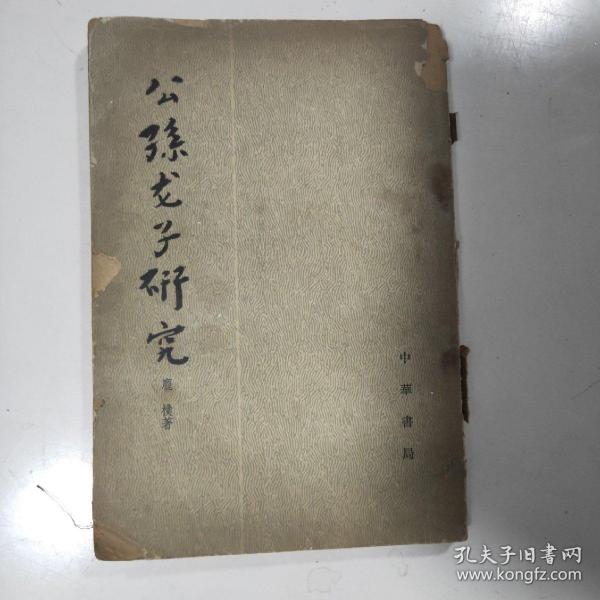 公孫龙子研究
龐樸著
中華書局
孔夫子旧書网
www.kongfz.com